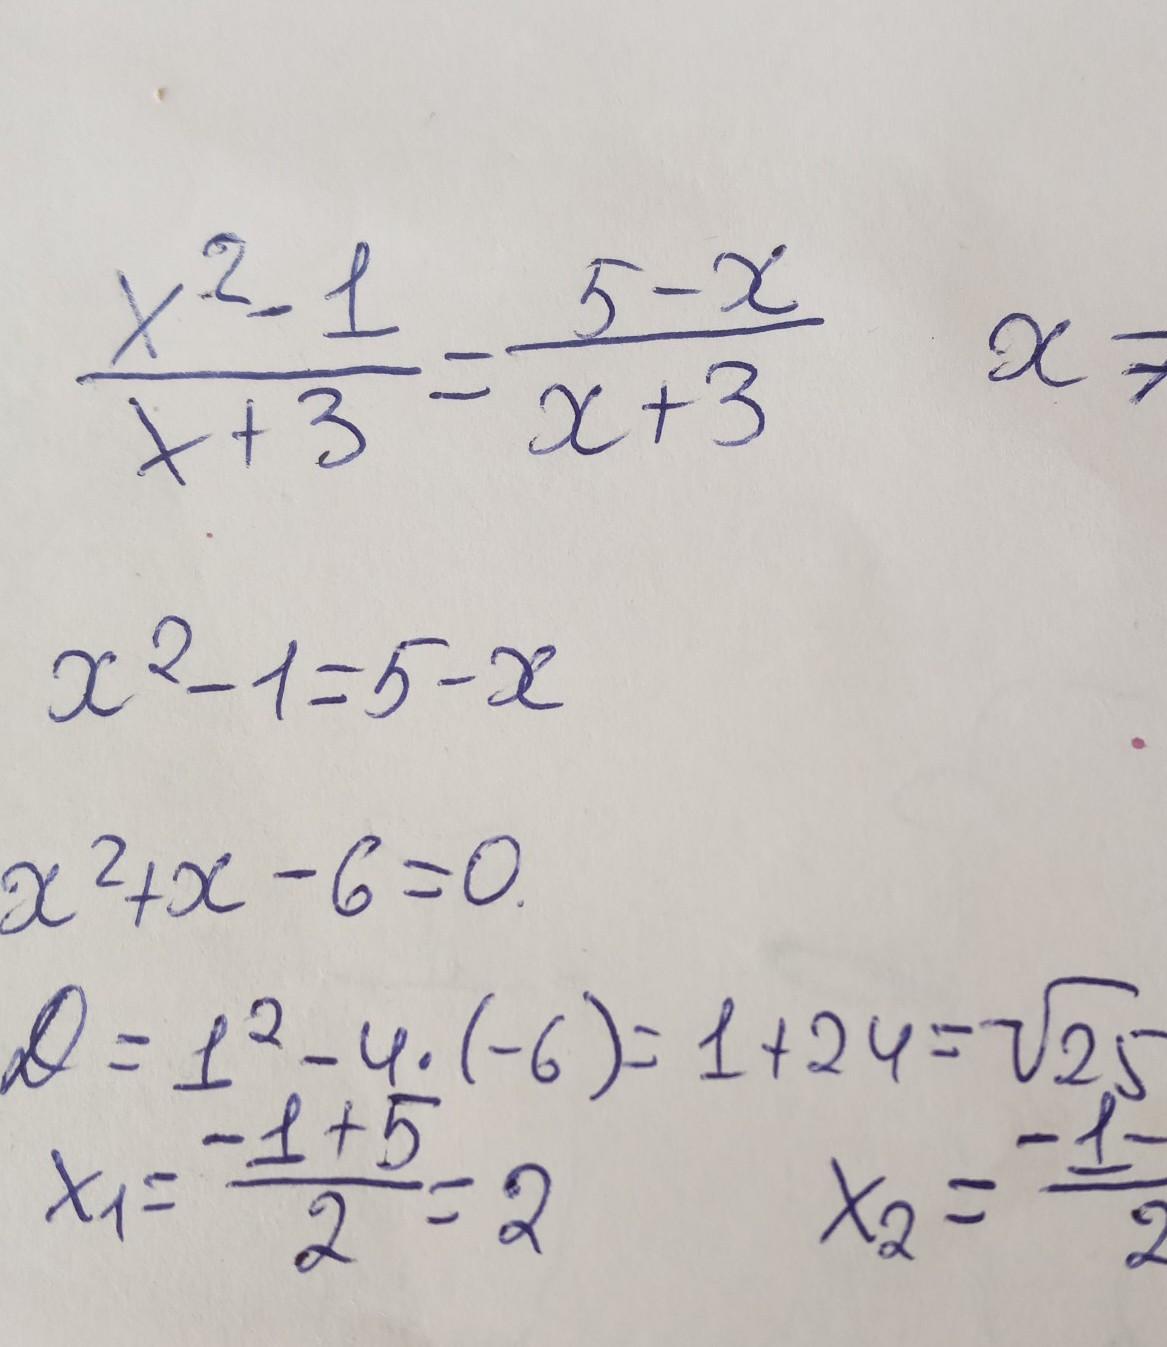 x²-1/x+3 = 5-x/x+3 x ≠
x²-1=5-x
x²+x-6=0.
D=1²-4·(-6)=1+24=√25
x₁=-1+5/2=2 x₂=-1-/2